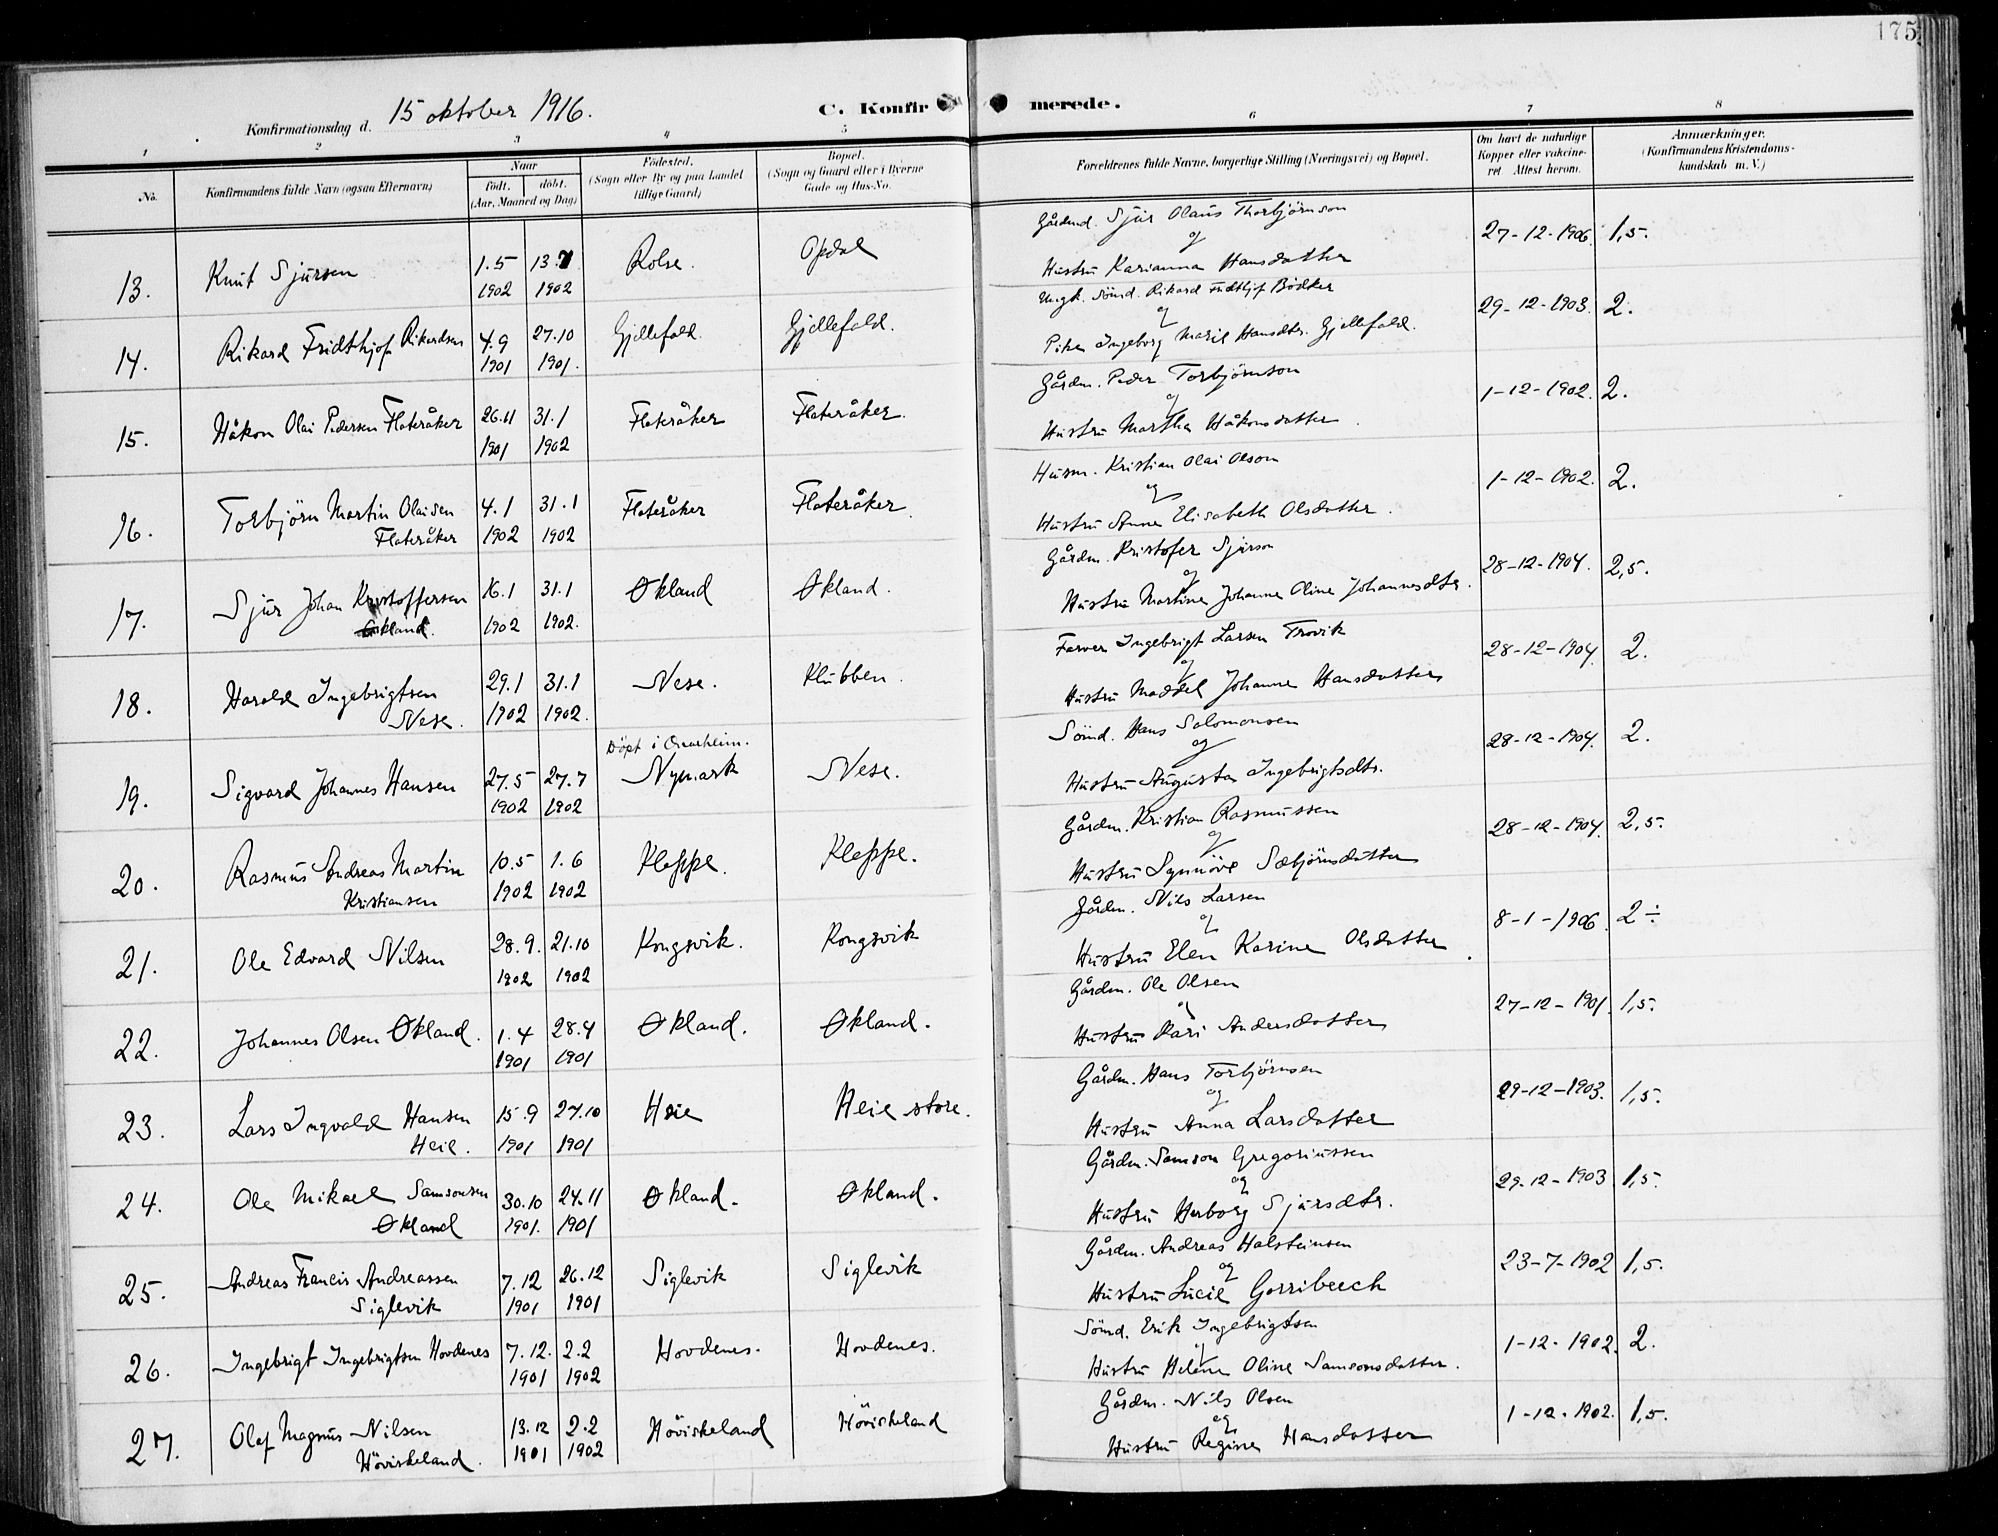 175
Konfirmationsdag d. 15 oktober 1916.
C. Konfirmerede.
1 2 3 4 5 6 7 8
No.
Konfirmandens fulde Navn (ogsaa Efternavn)
Naar
født. døbt.
(Aar, Maaned og Dag)
Fødested.
(Sogn eller By og paa Landet
tillige Gaard)
Bopæl.
(Sogn og Gaard eller i Byerne
Gade og Hus-No.
Forældrenes fulde Navne, borgerlige Stilling (Næringsvei) og Bopæl.
Om havt de naturlige
Kopper eller vakcine-
ret Attest herom.
Anmærkninger.
(Konfirmandens Kristendoms-
kundskab m. V.)
13. Knut Sjursen 1.5 1902 13.7 1902 Rolse. Opdal
Gårdmd. Sjur Olaus Thorbjørnson
og
Hustru Karianna Hansdatter
27-12-1906 1,5.
14. Rikard Fridthjof Rikardsen 4.9 1901 27.10 1901. Gjellefald. Gjellefald.
Ungk. Sömd. Rikard Fridthjof Bödker
og
Pike Ingeborg Marie Hansdtr. Gjellefald.
29-12-1903. 2.
15. Håkon Olai Pedersen Flateråker 26.11 1901 31.1 1902 Flateråker Flateråker.
Gårdm. Peder Torbjörnson
og
Hustru Martha Håkonsdatter.
1-12-1902. 2.
16. Torbjörn Martin Olaisen
Flateråker 4.1 1902 31.1 1902 Flateråker Flateråker.
Husm. Kristian Olai Olson
og
Hustru Anna Elisabeth Olsdatter.
1-12-1902. 2.
17. Sjur Johan Kristoffersen
Økland. 16.1 1902 31.1 1902. Økland Økland.
Gårdm. Kristofer Sjurson
og
Hustru Martine Johanne Oline Johannesdtr.
28-12-1904. 2,5.
18. Harald Ingebrigtsen
Nese. 29.1 1902 31.1 1902. Nese. Klubben.
Farver Ingebrigt Larsen Trovik
og
Hustru Maddel Johanne Hansdatter
28-12-1904. 2.
19. Sigvard Johannes Hansen 27.5 1902 27.7 1902
Döpt i
Nymark Nese.
Sömd. Hans Salomonsen
og
Hustru Augusta Ingebrigtsdtr.
28-12-1904. 2.
20. Rasmus Andreas Martin
Kristiansen 10.5 1902 1.6 1902 Kleppe. Kleppe.
Gårdm. Kristian Rasmussen
og
Hustru Synnöve Sæbjörnsdatter
28-12-1904. 2,5.
21. Ole Edvard Nilsen 28.9. 1902 21.10 1902 Kongsvik. Kongsvik
Gårdm. Nils Larsen
og
Hustru Elen Karine Olsdatter.
8-1-1906. 2÷
22. Johannes Olsen Økland. 1.4 1901 28.4 1901 Økland. Økland.
Gårdm. Ole Olsen
og
Hustru Kari Andersdatter
27-12-1901. 1,5.
23. Lars Ingvald Hansen
Heie. 15.9 1901 27.10 1901 Heie Heie store.
Gårdm. Hans Torbjörnsen
og
Hustru Anna Larsdatter
29-12-1903. 1,5.
24. Ole Mikael Samsonsen
Økland 30.10 1901. 24.11 1901 Økland. Økland.
Gårdm. Samson Gregoriussen
og
Hustru Herborg Sjursdtr.
29-12-1903 1,5.
25. Andreas Francis Andreassen
Siglevik 7.12 1901 26.12 1901 Siglevik Siglevik
Gårdm. Andreas Halsteinsen
og
Hustru Lucie Gorribeech
23-7-1902 1,5.
26. Ingebrigt Ingebrigtsen Hovdenes 7.12. 1901 2.2 1902 Hovdenes. Hovdenes.
Sömd. Erik Ingebrigtsen
og
Hustru Helene Oline Samsonsdatter.
1-12-1902. 2.
27. Olaf Magnus Nilsen
Höviskeland. 13.12 1901 2.2 1902 Höviskeland Höviskeland
Gårdm. Nils Olsen
og
Hustru Regine Hansdatter
1-12-1902. 1,5.